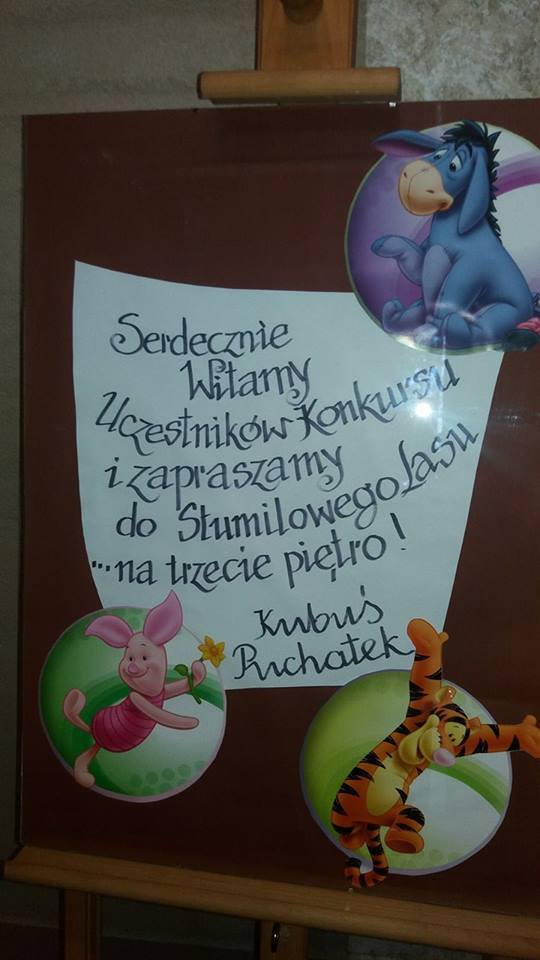 Serdecznie
Witamy
Uczestników Konkursu
i zapraszamy
do Stumilowego Lasu
...na trzecie piętro!
Kubuś
Puchatek